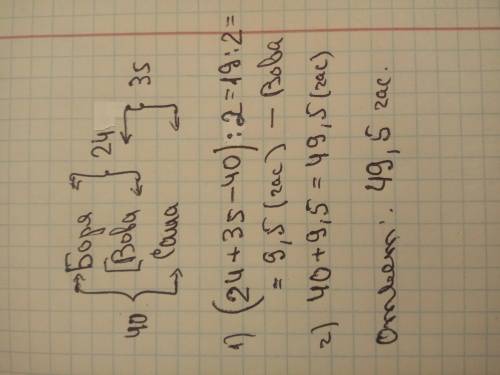 Боря
40 Вова 24 35
Саша
1) (24+35-40):2=19:2=
= 9,5 (час) — Вова
2) 40+9,5=49,5 (час)
Ответ: 49,5 час.